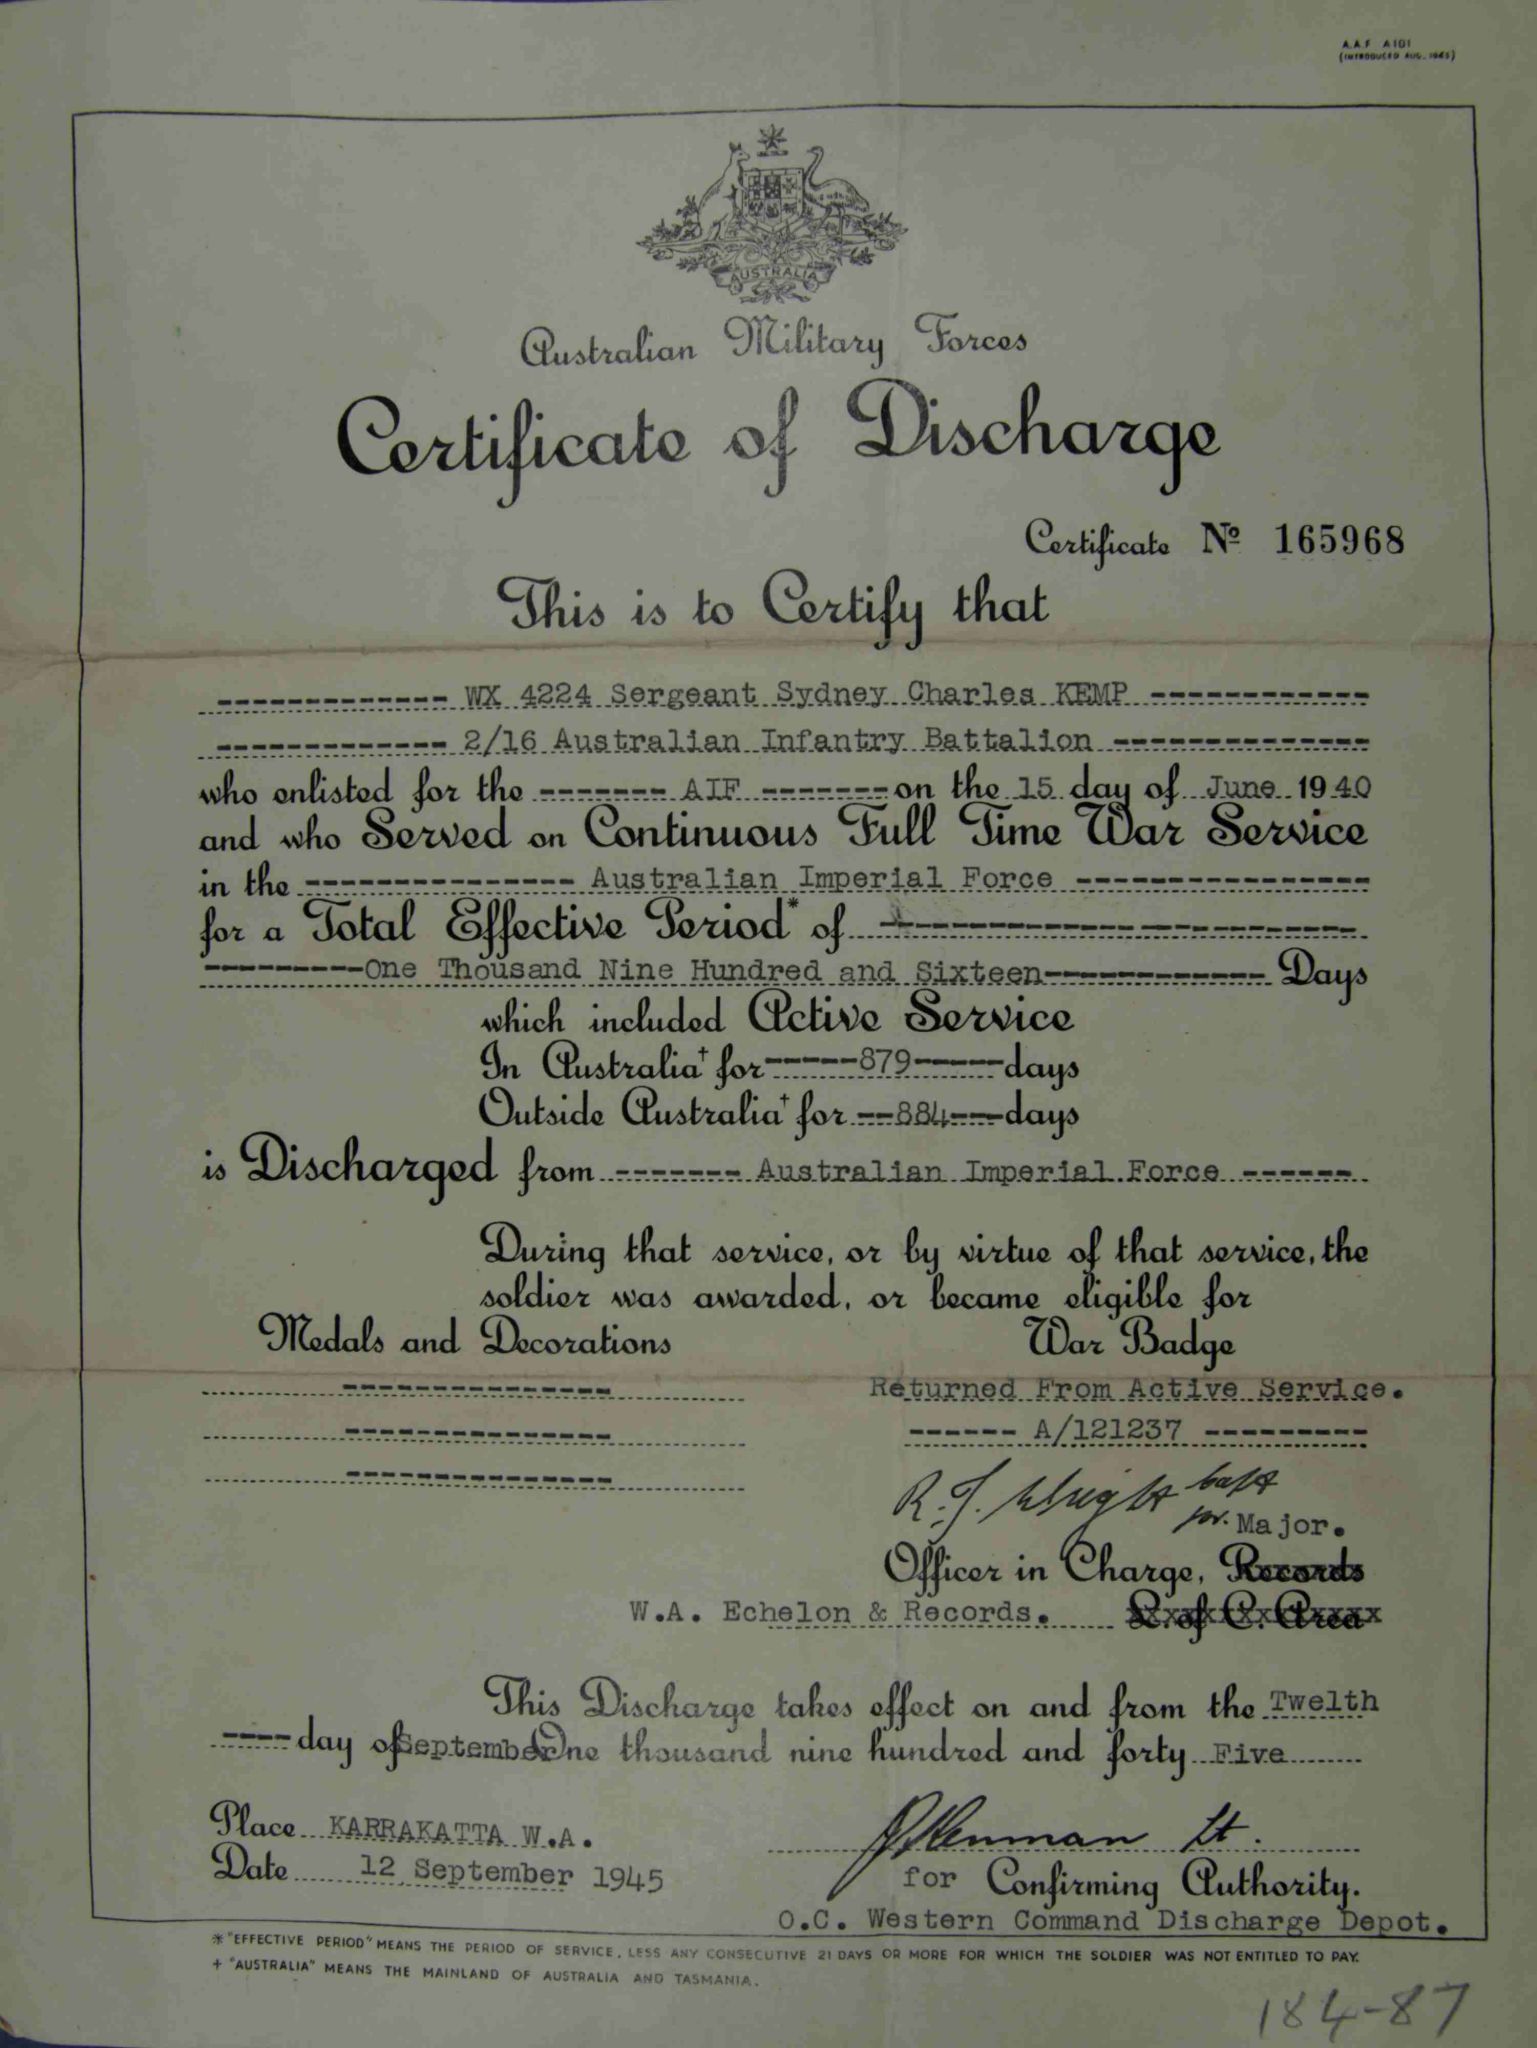 A.A.F A101
(INTRODUCED AUG. 1945)
AUSTRALIA
Australian Military Forces
Certificate of Discharge
Certificate No 165968
This is to Certify that
------------ WX 4224 Sergeant Sydney Charles KEMP ------------
------------- 2/16 Australian Infantry Battalion --------------
who enlisted for the ------- AIF ------- on the 15 day of June 1940
and who Served on Continuous Full Time War Service
in the --------------- Australian Imperial Force ----------------
for a Total Effective Period* of --------------------------
---------One Thousand Nine Hundred and Sixteen------------ Days
which included Active Service
In Australia† for-----879-----days
Outside Australia† for --884---days
is Discharged from ------- Australian Imperial Force ------
During that service, or by virtue of that service, the
soldier was awarded, or became eligible for
Medals and Decorations War Badge
--------------- Returned From Active Service.
--------------- ------ A/121237 ---------
---------------
R. J. Wright Capt
for. Major.
Officer in Charge, Records
W.A. Echelon & Records. L. of C. Area
This Discharge takes effect on and from the Twelth
---- day of September One thousand nine hundred and forty Five
Place KARRAKATTA W.A.
Lt.
Date 12 September 1945
for Confirming Authority.
O.C. Western Command Discharge Depot.
* "EFFECTIVE PERIOD" MEANS THE PERIOD OF SERVICE, LESS ANY CONSECUTIVE 21 DAYS OR MORE FOR WHICH THE SOLDIER WAS NOT ENTITLED TO PAY.
+ "AUSTRALIA" MEANS THE MAINLAND OF AUSTRALIA AND TASMANIA.
184-87